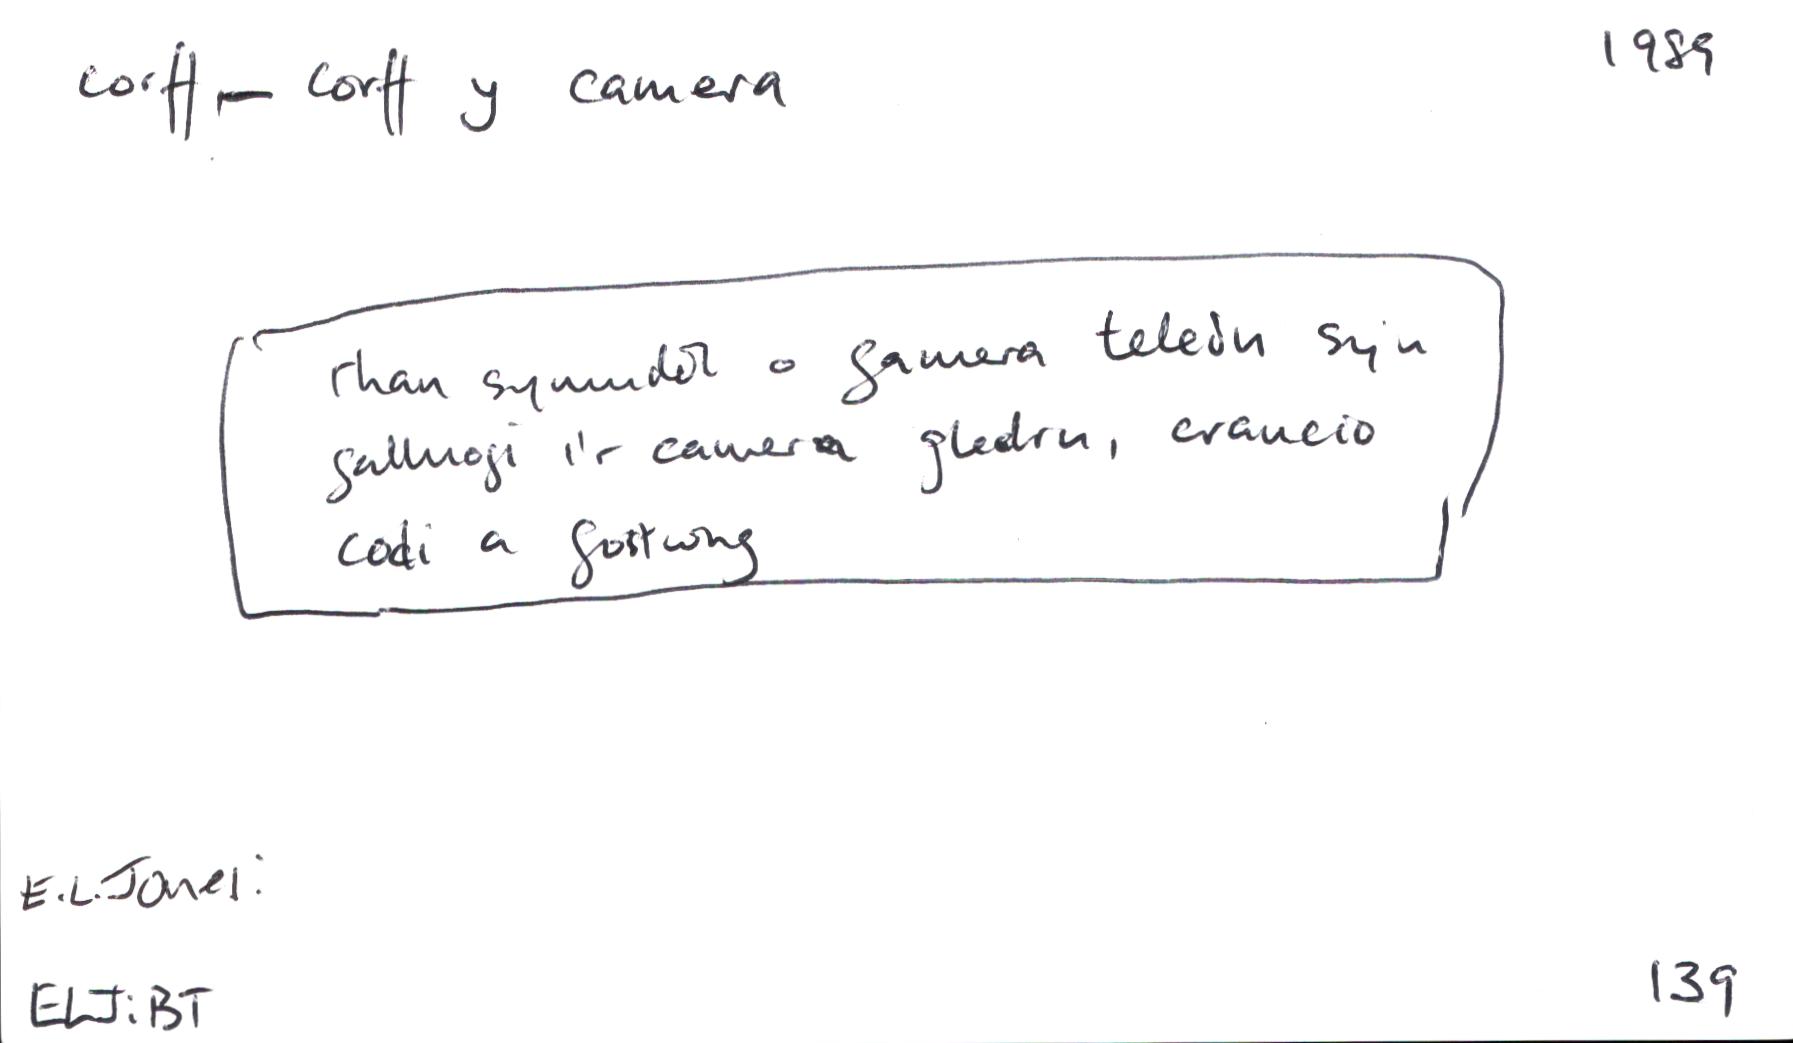 corff – corff y camera
1989
rhan symudol o gamera teledu sy'n
galluogi i'r camera gledru, crancio
codi a gostwng
E.L. Jones:
ELJ: BT
139